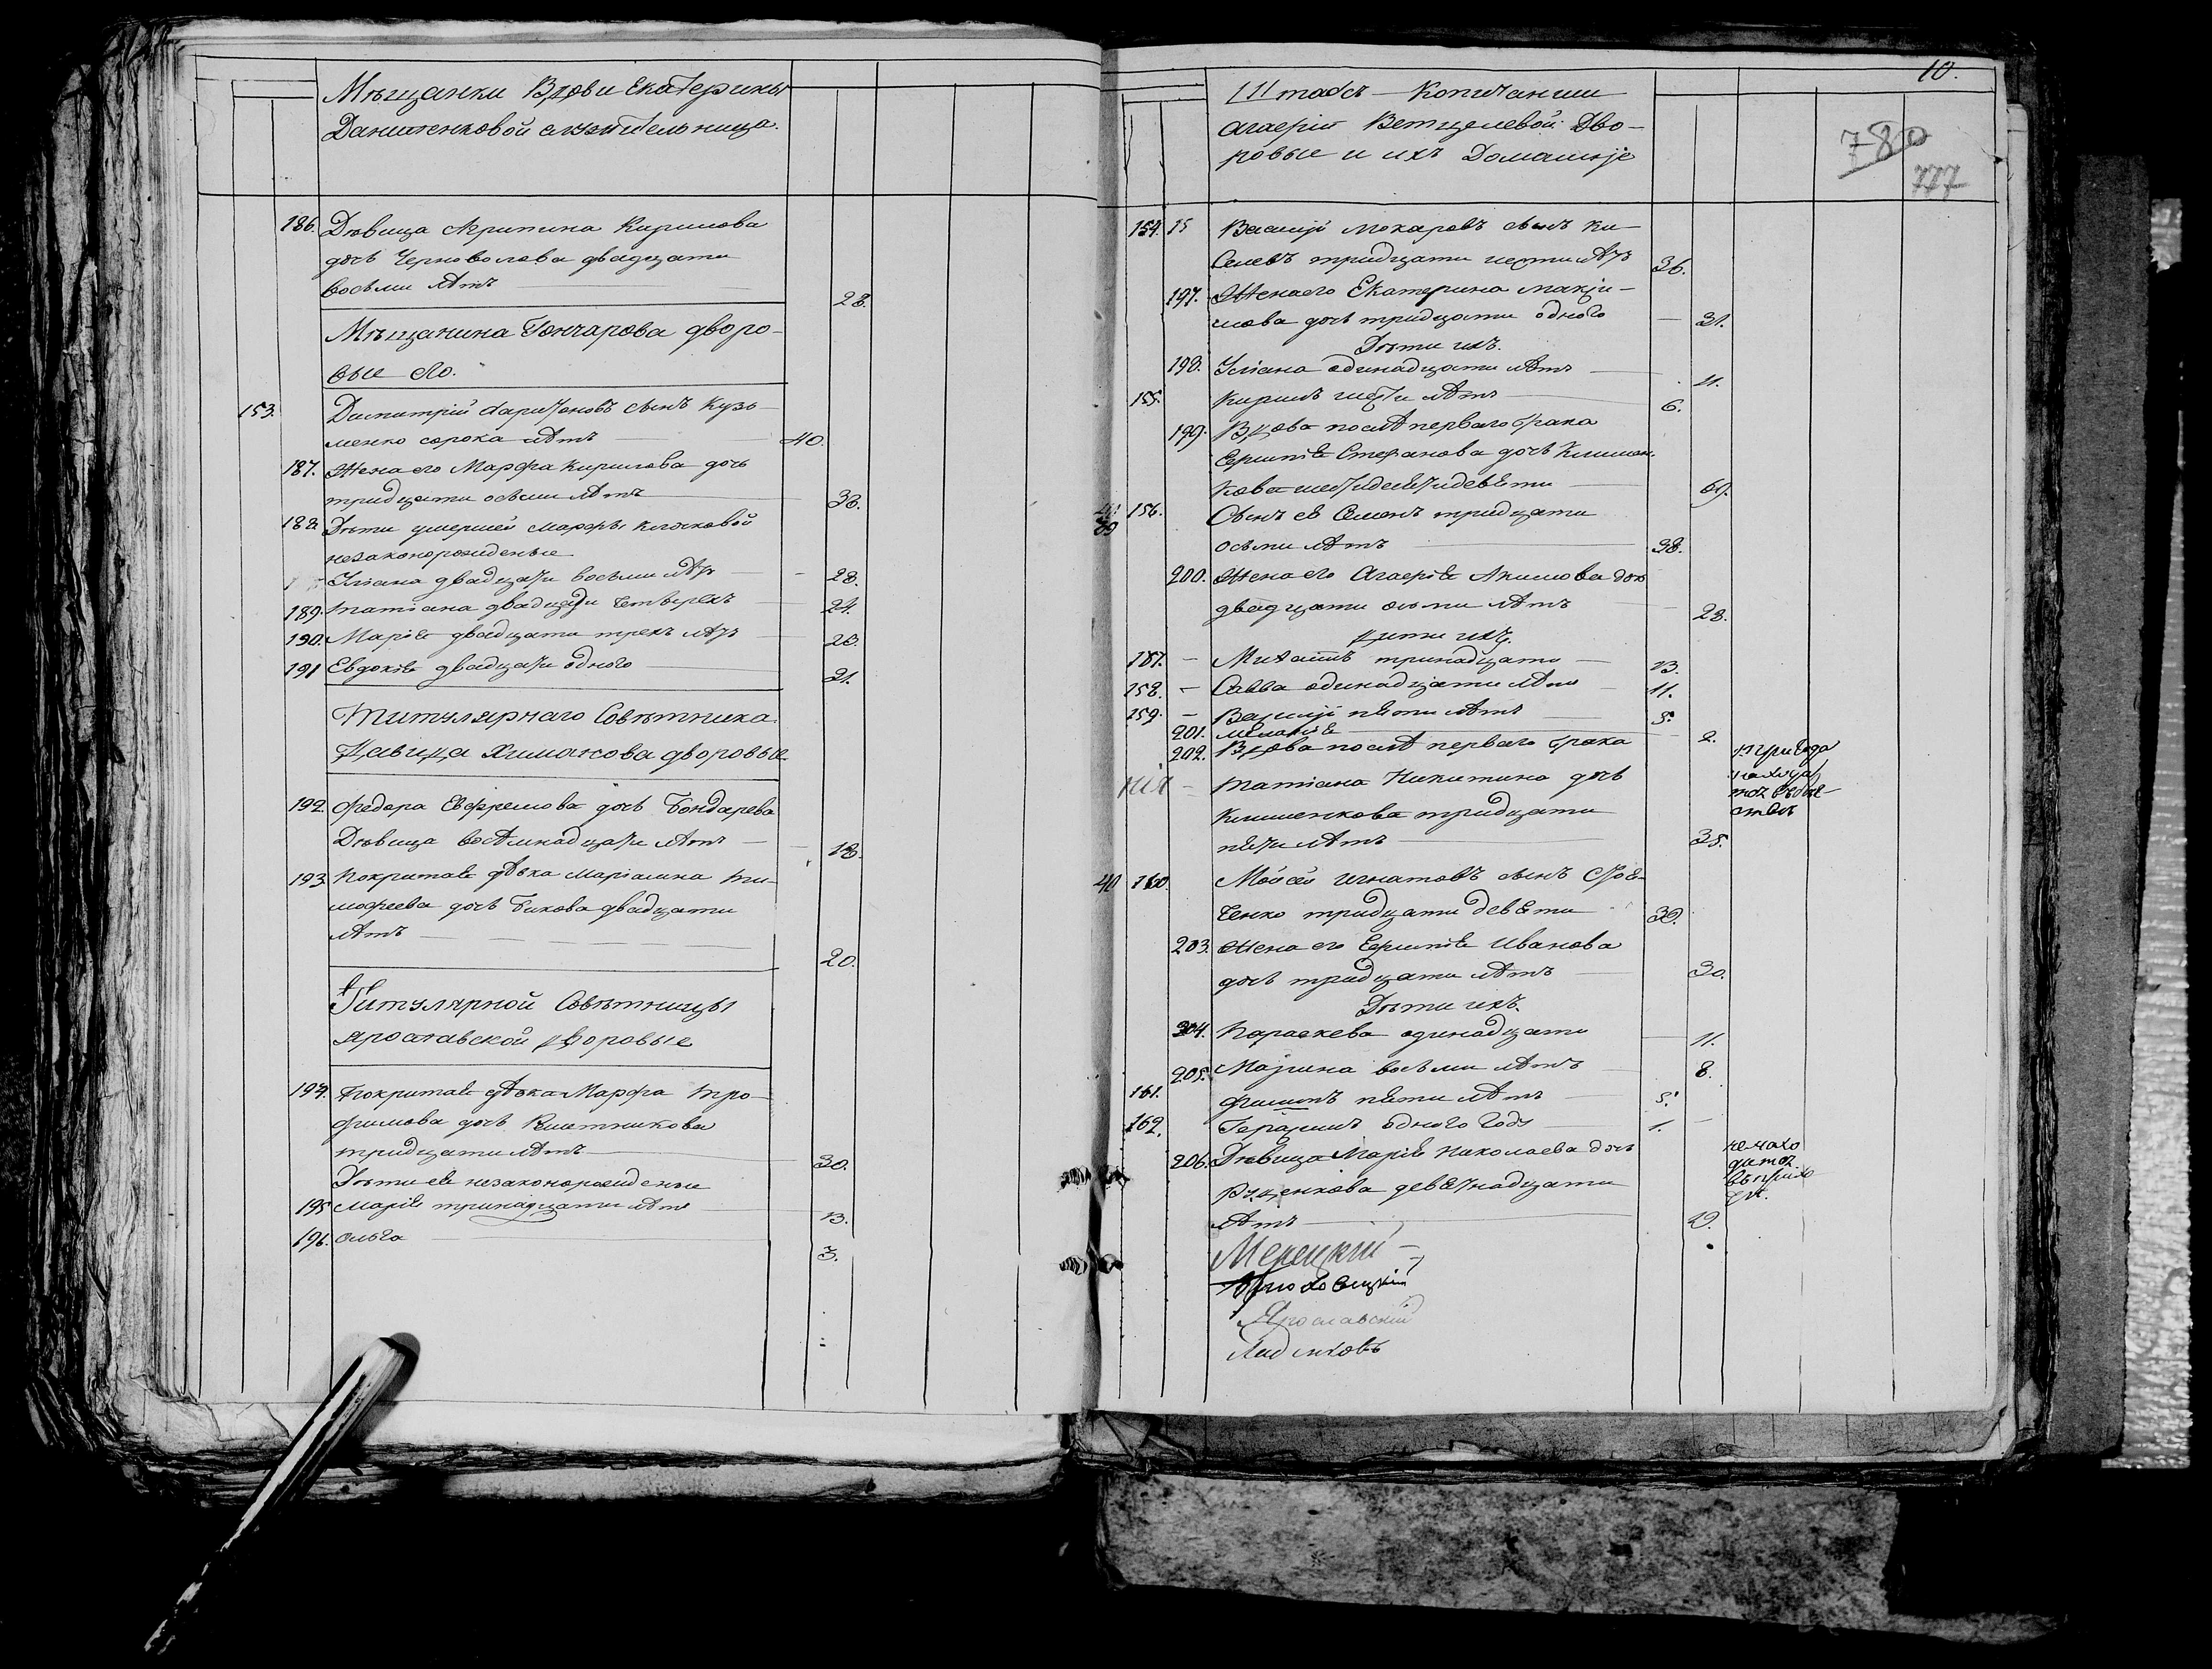 Мѣщанки Вдови Екатерины
Данименковой служительница.
186. Дѣвица Агрипина Кирилова
дочь Черноволова двадцати
восьми лѣтъ 28.
Мѣщанина Гончарова дворо-
вые его.
153. Димитрій Харитоновъ сынъ Кузь-
менко сорока лѣтъ 40.
187. Жена его Марфа Кирилова дочь
тридцати осьми лѣтъ 38.
188. Дѣти умершей Марфы Клочковой
незаконорожденые
Уліана двадцати восьми лѣтъ 28.
189. Татіана двадцати четырехъ 24.
190. Марія двадцати трехъ лѣтъ 23.
191 Евдокія двадцати одного 21.
Титулярнаго Совѣтника
Давида Химакова дворовые
192 Федора Ефремова дочь Бондарева
Дѣвица восѣмнадцати лѣтъ 18.
193. Покритая дѣвка Маріамна Ти-
мофеева дочь Бикова двадцати
лѣтъ 20.
Титулярной Совѣтницы
Ярославской дворовые
194. Покритая дѣвка Марфа Тро-
фимова дочь
тридцати лѣтъ 30.
Дѣти ея незаконорожденые
195 Марія тринадцати лѣтъ 13.
196. Ольга 3.
10.
780
777
Штабсъ-Капитанши
Агафіи Ветцелевой Дво-
ровые и ихъ Домашніе
154. 15 Василій Макаровъ сынъ Ки-
селевъ тридцати шести лѣтъ 36.
197. Жена его Екатерина Макси-
мова дочь тридцати одного 31.
Дѣти ихъ.
198. Уліана одинадцати лѣтъ 11.
155. Кирилъ шести лѣтъ 6.
199. Вдова послѣ перваго брака
Ефимія Стефанова дочь Климен-
кова шестидесятидевяти 69.
39 156. Сынъ ея Семенъ тридцати
осьми лѣтъ 38.
200. Жена его Агафія Акимова дочь
двадцати осьми лѣтъ 28.
Дѣти ихъ.
157. Михаилъ тринадцати 13.
158. Савва одинадцати лѣтъ 11.
159. Василій пяти лѣтъ 5.
201. Меланія 2.
202. Вдова послѣ перваго брака
Татіана Никитина дочь
Клименкова тридцати
пяти лѣтъ 35.
три года
находи
тся въ бѣг
ствѣ
40 160. Моисей Игнатовъ сынъ
ченко тридцати девяти 39.
203. Жена его Ефимія Иванова
дочь тридцати лѣтъ 30.
Дѣти ихъ.
204. Параскева одинадцати 11.
205. Марина восьми лѣтъ 8
161. Филипъ пяти лѣтъ 5.
162. Герасимъ одного года 1.
206. Дѣвица Марія Николаева дочь
Руденкова девятнадцати
лѣтъ 19.
не нахо
дится
въ прихо
дѣ.
Мерецкій
Ярославскій